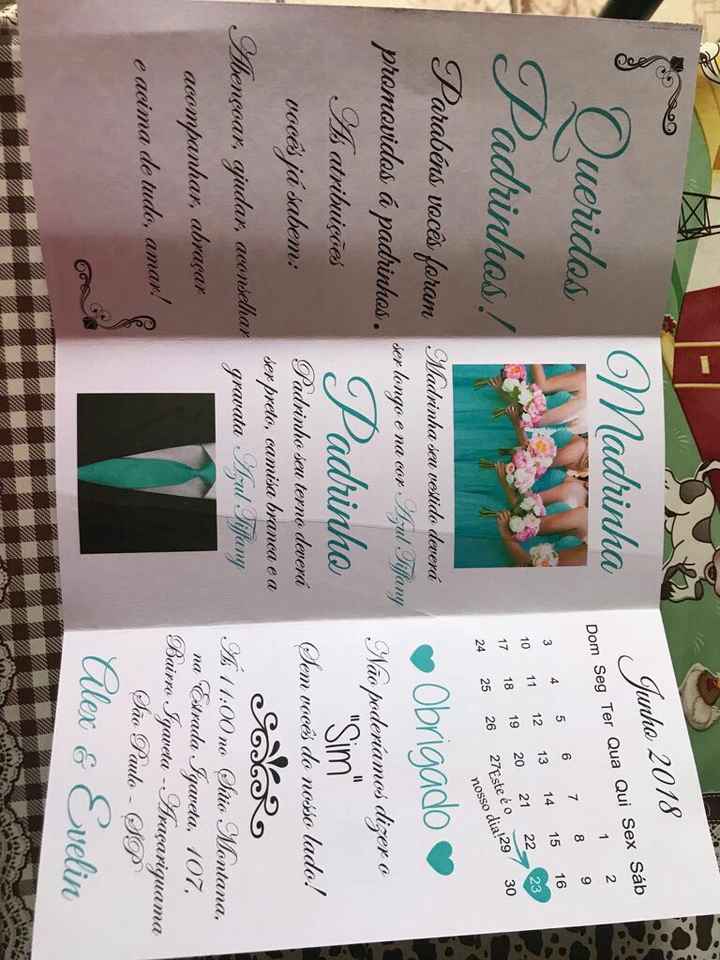 Queridos
Padrinhos!
Parabéns vocês foram
promovidos á padrinhos.
As atribuições
vocês já sabem:
Abençoar, ajudar, aconselhar
acompanhar, abraçar
e acima de tudo, amar!
Madrinha
Madrinha seu vestido deverá
ser longo e na cor Azul Tiffany
Padrinho
Padrinho seu terno deverá
ser preto, camisa branca e a
gravata Azul Tiffany
Junho 2018
Dom Seg Ter Qua Qui Sex Sáb
1 2
3 4 5 6 7 8 9
10 11 12 13 14 15 16
17 18 19 20 21 22 23
24 25 26 27 29 30
Este é o
nosso dia!
Obrigado
Não poderíamos dizer o
"Sim"
Sem vocês do nosso lado!
Ás 11:00 no Sítio Montana,
na Estrada Igaveta, 107,
Bairro Igaveta - Araçariguama
São Paulo - SP
Alex & Evelin